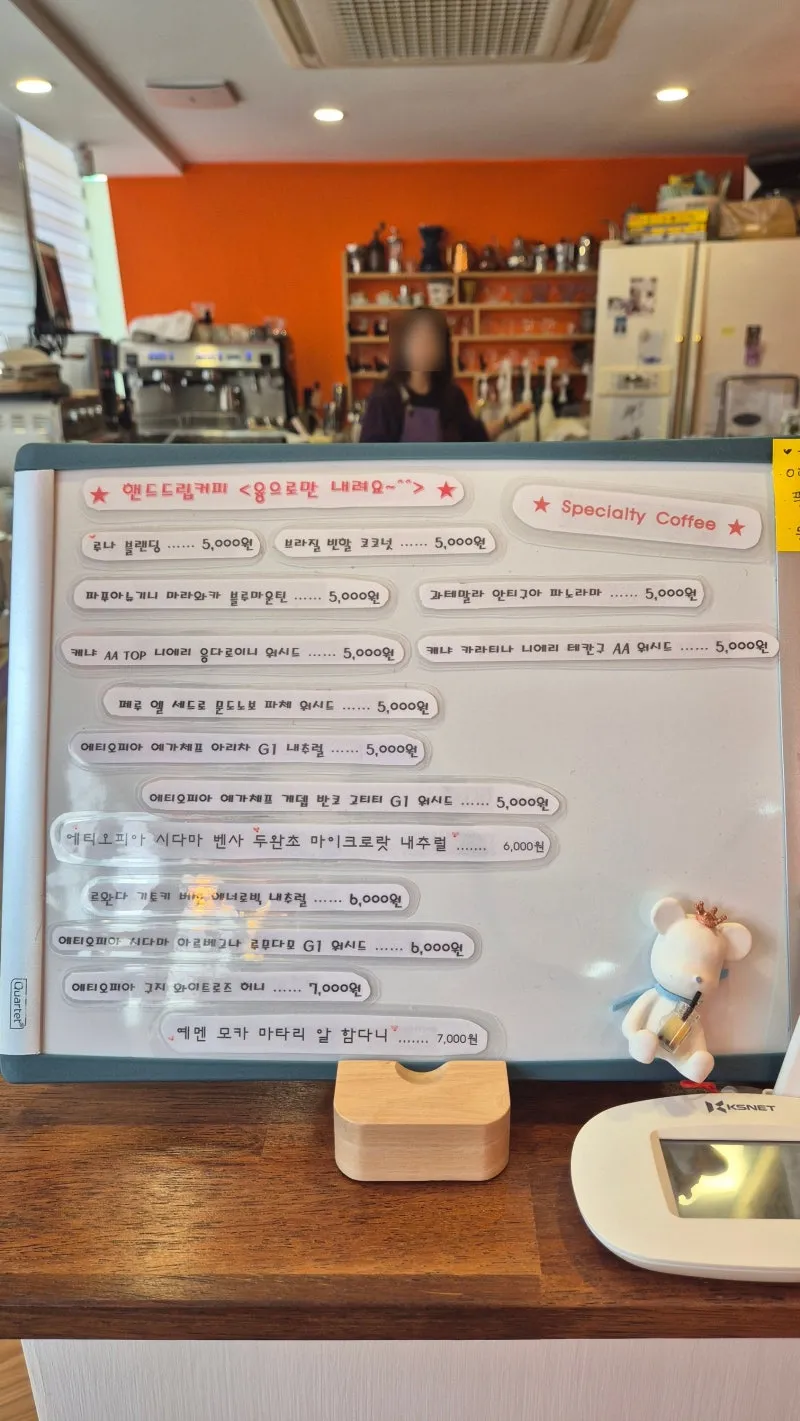 ★ 핸드드립커피 <융으로만 내려요~^^> ★
★ Specialty Coffee ★
루나 블랜딩 ...... 5,000원
브라질 빈할 코코넛 ...... 5,000원
파푸아뉴기니 마라와카 블루마운틴 ...... 5,000원
과테말라 안티구아 파노라마 ...... 5,000원
케냐 AA TOP 니에리 웅다로이니 워시드 ...... 5,000원
케냐 카라티나 니에리 테칸구 AA 워시드 ...... 5,000원
페루 엘 세드로 문도노보 파체 워시드 ...... 5,000원
에티오피아 예가체프 아리차 G1 내추럴 ...... 5,000원
에티오피아 예가체프 게뎁 반코 고티티 G1 워시드 ...... 5,000원
에티오피아 시다마 벤사 두완초 마이크로랏 내추럴 ....... 6,000원
르완다 기토키 에너로빅 내추럴 ...... 6,000원
에티오피아 시다마 아르베고나 루무다모 G1 워시드 ...... 6,000원
에티오피아 구지 와이트로즈 허니 ...... 7,000원
예멘 모카 마타리 알 함다니 ....... 7,000원
Quartet
KSNET